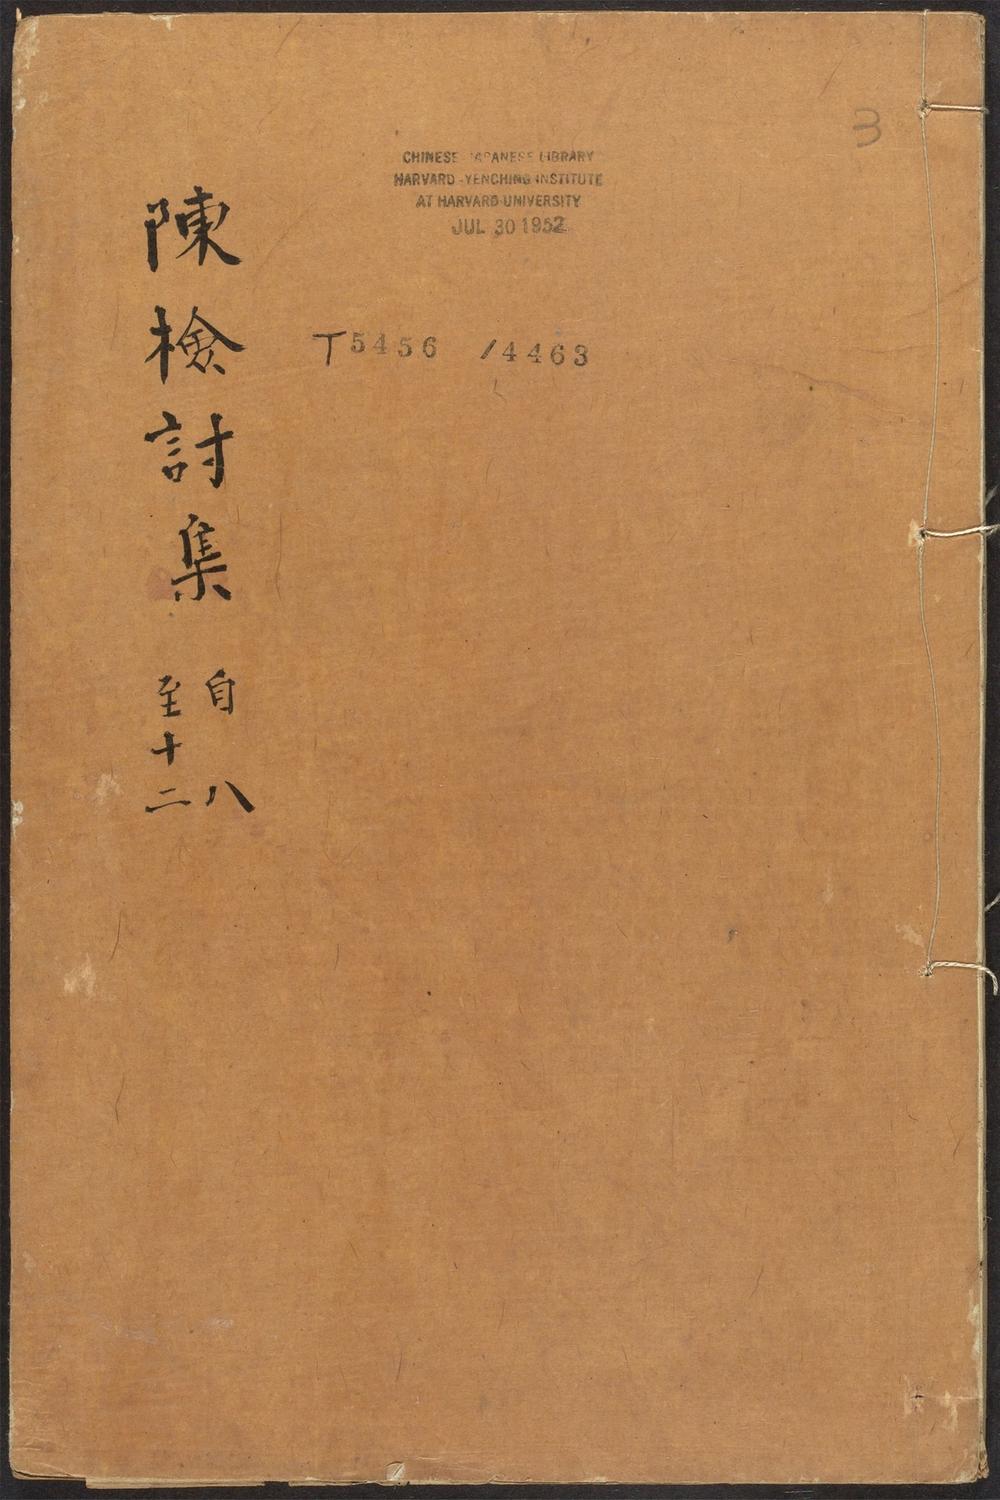 3
CHINESE JAPANESE LIBRARY
HARVARD-YENCHING INSTITUTE
AT HARVARD UNIVERSITY
JUL 30 1952
T5456 /4463
陳檢討集
自八
至十二